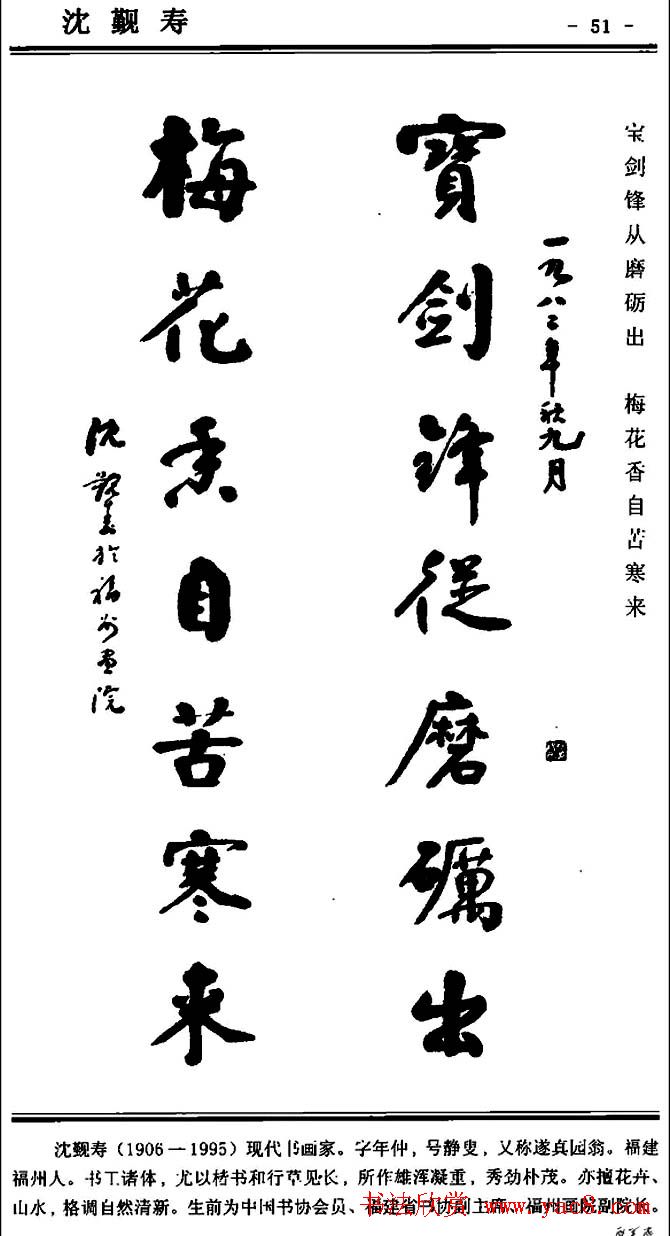 沈觐寿
- 51 -
宝剑锋从磨砺出 梅花香自苦寒来
一九八二年秋九月
寶劍鋒從磨礪出
梅花香自苦寒来
沈覲壽於福州画院
沈觐寿（1906—1995）现代书画家。字年仲，号静叟，又称遂真园翁。福建
福州人。书工诸体，尤以楷书和行草见长，所作雄浑凝重，秀劲朴茂。亦擅花卉、
山水，格调自然清新。生前为中国书协会员、福建省书协副主席、福州画院副院长。
书法欣赏 www.yac8.com